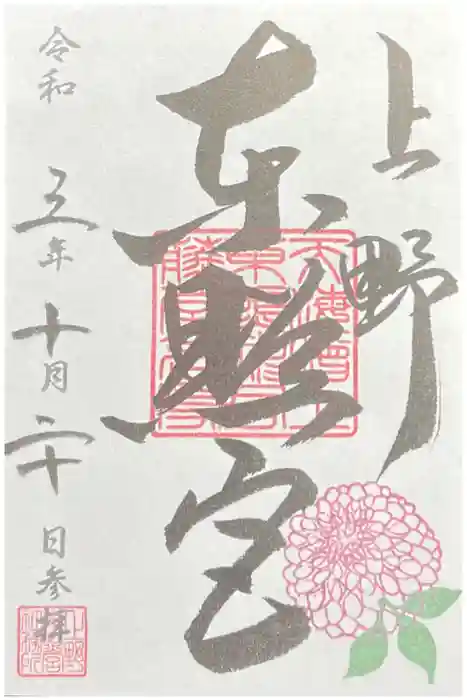 上野
東照宮
令和 五年 十月 二十日参拝